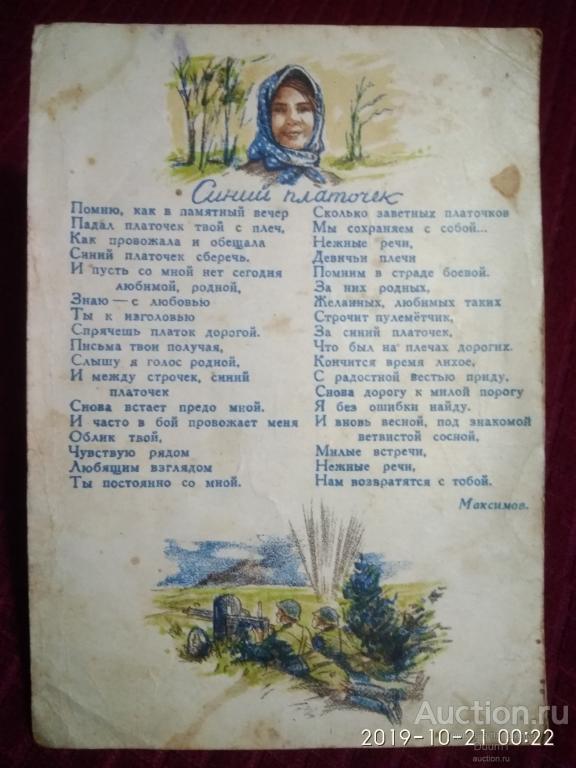 Синий платочек
Помню, как в памятный вечер
Падал платочек твой с плеч,
Как провожала и обещала
Синий платочек сберечь.
И пусть со мной нет сегодня
любимой, родной,
Знаю — с любовью
Ты к изголовью
Спрячешь платок дорогой.
Письма твои получая,
Слышу я голос родной,
И между строчек, синий
платочек
Снова встает предо мной.
И часто в бой провожает меня
Облик твой,
Чувствую рядом
Любящим взглядом
Ты постоянно со мной.
Сколько заветных платочков
Мы сохраняем с собой...
Нежные речи,
Девичьи плечи
Помним в страде боевой.
За них родных,
Желанных, любимых таких
Строчит пулемётчик,
За синий платочек,
Что был на плечах дорогих.
Кончится время лихое,
С радостной вестью приду,
Снова дорогу к милой порогу
Я без ошибки найду.
И вновь весной, под знакомой
ветвистой сосной,
Милые встречи,
Нежные речи,
Нам возвратятся с тобой.
Максимов.
Auction.ru
2019-10-21 00:22
auction.ru